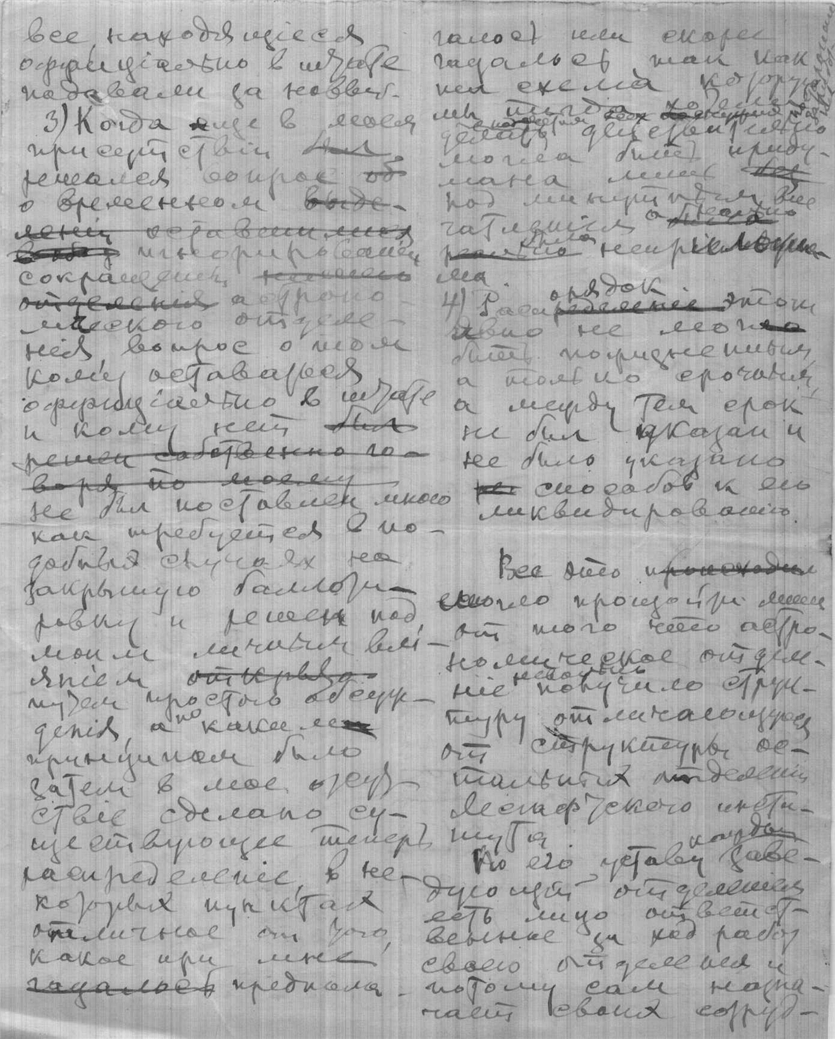 все находящіеся
оффиціально в штате
подавали за новый.
3) Когда еще в моем
присутствіи
решался вопрос об
о временном выде-
леніи оставшимся
игнорировании
сокращеніи
отделенія астроно-
мического отделе-
нія, вопрос о том
кому оставаться
оффиціально в штате
и кому нет был
решен собственно го-
воря по моему
не был поставлен много
как требуется в по-
добных случаях на
закрытую баллоти-
ровку и решен под
моим личным влі-
яніем
путем простого обсуж-
денія, а по каким
принципам было
затем в мое отсут-
ствіе сделано су-
ществующее теперь
распределеніе, в не-
которых пунктах
отличное от того,
какое при мне
гадалось предпола-
галось или скорее
гадалось так как
схема которую
мы тогда хотели
сделать действительно
могла быть приду-
мана лишь
под минутным впе-
чатлением а
была неприложи-
ма.
4) Распределеніе порядок этот
явно не мог
быть пожизненным,
а только срочным,
а между тем срок
не был указан и
не было указано
способов к его
ликвидированію.
Все это происходил
могло произойти лишь
от того что астро-
номическое отделе-
ніе получило струк-
туру отличающуюся
от структуры ос-
тальных отделеній
Лесгафтского инсти-
тута.
По его уставу каждый заве-
дующій отделением
есть лицо ответст-
венное за ход работ
своего отделения и
потому сам назна-
чает своих сотруд-